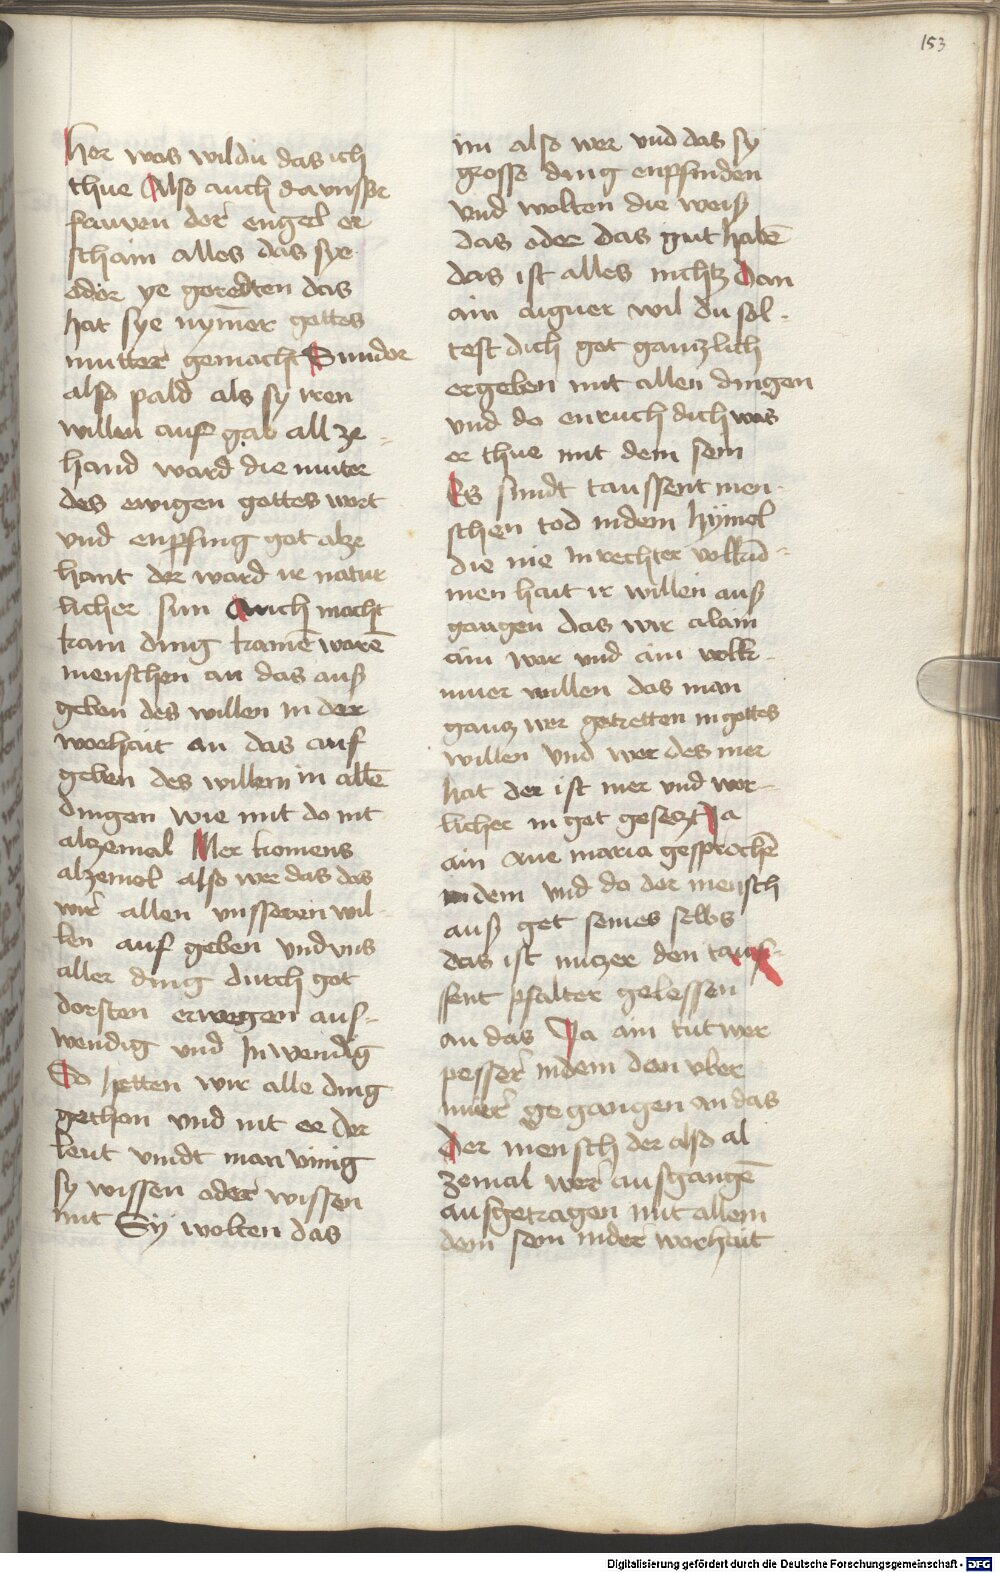 153
her was wildu das ich
thue Also auch da vnsser
frauwen der engel er
schain alles das sye
oder ye geredten das
hat sye nymer gottes
mutter gemacht Sunder
also pald als sy iren
willen auf gab all ze
hand ward die muter
des ewigen gottes wort
vnd enpfing got alze
hant der ward ir natur
licher sun Auch macht
kain ding kainē warē
menschen an das auß
geben des willen in der
worhait an das auf
geben des willem in allē
dingen wie mit do nit
alzemal Mer komens
alzemol also wer das das
wir allen vnsseren wil
len auf geben vnd vns
aller ding durch got
dorsten erwegen aus-
wendig vnd Inwendig
So hetten wir alle ding
gethon vnd nit ee der
leut vindt man vinig
sy wissen oder wissen
nit Sy wolten das
im also wer vnd das sy
grosse ding enpfinden
vnd wolten die weiß
das oder das gut habē
das ist alles nichtz Dan
ain aigner wil du sol-
test dich got gantzlich
ergeben mit allen dingen
vnd do enruch dich was
er thue mit dem sein
Es sindt taussent men-
schen tod in dem hymel
die nie In rechter volkū-
men hait ir willen auß
gangen das wir alain
ain war vnd ain volk-
muer willen das man
gantz wer getretten in gottes
willen vnd wer des mer
hat der ist mer vnd wor-
licher in got gesetzt Ja
ain aue maria gesprochē
in dem vnd do der mensch
auß get seines selbs
das ist nutzer den taus-
sent psalter gelessen
an das Ja ain trit wer
pesser in dem dan vber
mer gegangen an das
Der mensch der also al
zemal wer ausgangē
ausgetragen mit allem
dem sein in der worhait
Digitalisierung gefördert durch die Deutsche Forschungsgemeinschaft - DFG